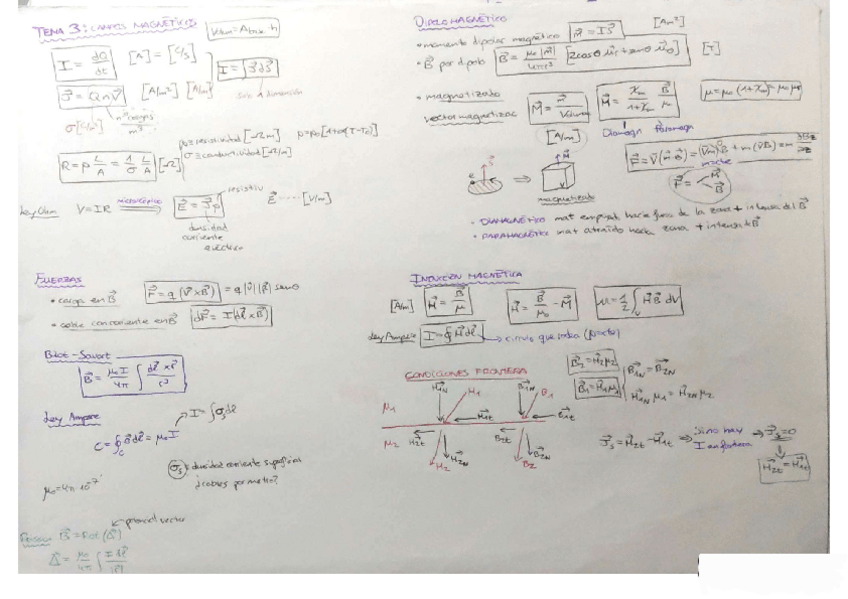 TEMA 3: CAMPOS MAGNÉTICOS
Vtotal = Abase · h
I = dQ/dt [A] = [C/s]
I = ∫ J⃗ dS⃗
J⃗ = Q n V⃗ [A/m²] [A/m]
sup 1 dimensión
σ [C/m³] nº cargas/m³
ρ ≡ resistividad [Ω m] ρ = ρ₀ [1 + α(T - T₀)]
σ ≡ conductividad [Ω/m]
R = ρ L/A = 1/σ L/A [Ω]
Ley Ohm V = IR microscópico E⃗ = J⃗ρ resistiv E⃗ ····· [V/m]
densidad corriente eléctrico
FUERZAS
• carga en B⃗ F⃗ = q (V⃗ × B⃗) = q |V⃗| |B⃗| senθ
• cable con corriente en B⃗ dF⃗ = I (dl⃗ × B⃗)
Biot-Savart
B⃗ = μ₀ I/4π ∫ dl⃗ × r⃗/r³
Ley Ampere I = ∫ σs dl⃗
C = ∮c B⃗ dl⃗ = μ₀ I
Js: densidad corriente superficial
¿cables por metro?
μ₀ = 4π · 10⁻⁷
potencial vector
B⃗ = Rot (A⃗)
A⃗ = μ₀/4π ∫ I dl⃗/|r⃗|
DIPOLO MAGNÉTICO
• momento dipolar magnético m⃗ = I S⃗ [Am²]
• B⃗ por dipolo B⃗ = μ₀ |m⃗|/4πr³ [2cosθ u⃗r + senθ u⃗θ] [T]
• magnetizado
vector magnetizac M⃗ = m⃗/Volumen M⃗ = χm/1+χm B⃗/μ μ = μ₀ (1 + χm) = μ₀ μr
[A/m] Diamagn Paramagn
F⃗ = ∇⃗(m⃗·B⃗) = (∇⃗m⃗)B⃗ + m(∇⃗B⃗) = m ∂B/∂z
m = cte
magnetizado
• DIAMAGNÉTICO mat empujad hacia fuera de la zona + intensa del B⃗
• PARAMAGNÉTICO mat atraído hacia zona + intensa de B⃗
INDUCCIÓN MAGNÉTICA
[A/m] H⃗ = B⃗/μ H⃗ = B⃗/μ₀ - M⃗ u = 1/2 ∫v H⃗ B⃗ dV
Ley Ampere I = ∮ H⃗ dl⃗ → circuito que indica
CONDICIONES FRONTERA
B⃗₂ = H⃗₂ μ₂
B⃗₁ = H⃗₁ μ₁
B⃗₁N = B⃗₂N
H⃗₁N μ₁ = H⃗₂N μ₂
H⃗₁N H₁ B⃗₁N B₁
μ₁ H⃗₁t B⃗₁t
μ₂ H⃗₂t B⃗₂t
H₂ H⃗₂N B₂ B⃗₂N
J⃗s = H⃗₂t - H⃗₁t ⇒ Si no hay I en frontera ⇒ J⃗s = 0
H⃗₂t = H⃗₁t